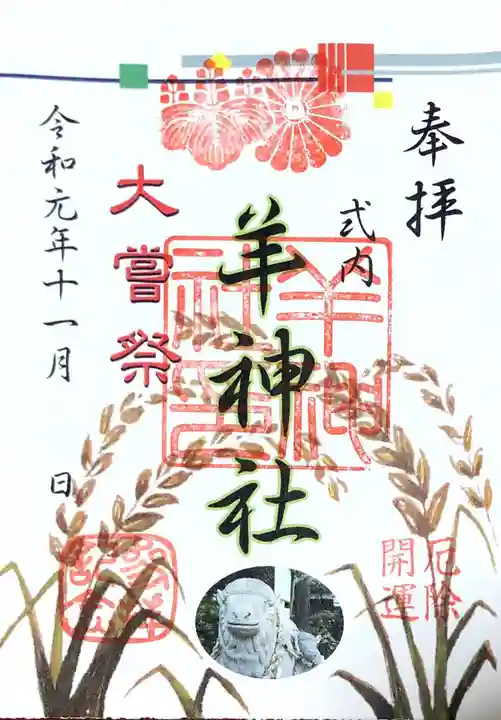 奉拝
式内
羊神社
大嘗祭
令和元年十一月 日
厄除
開運